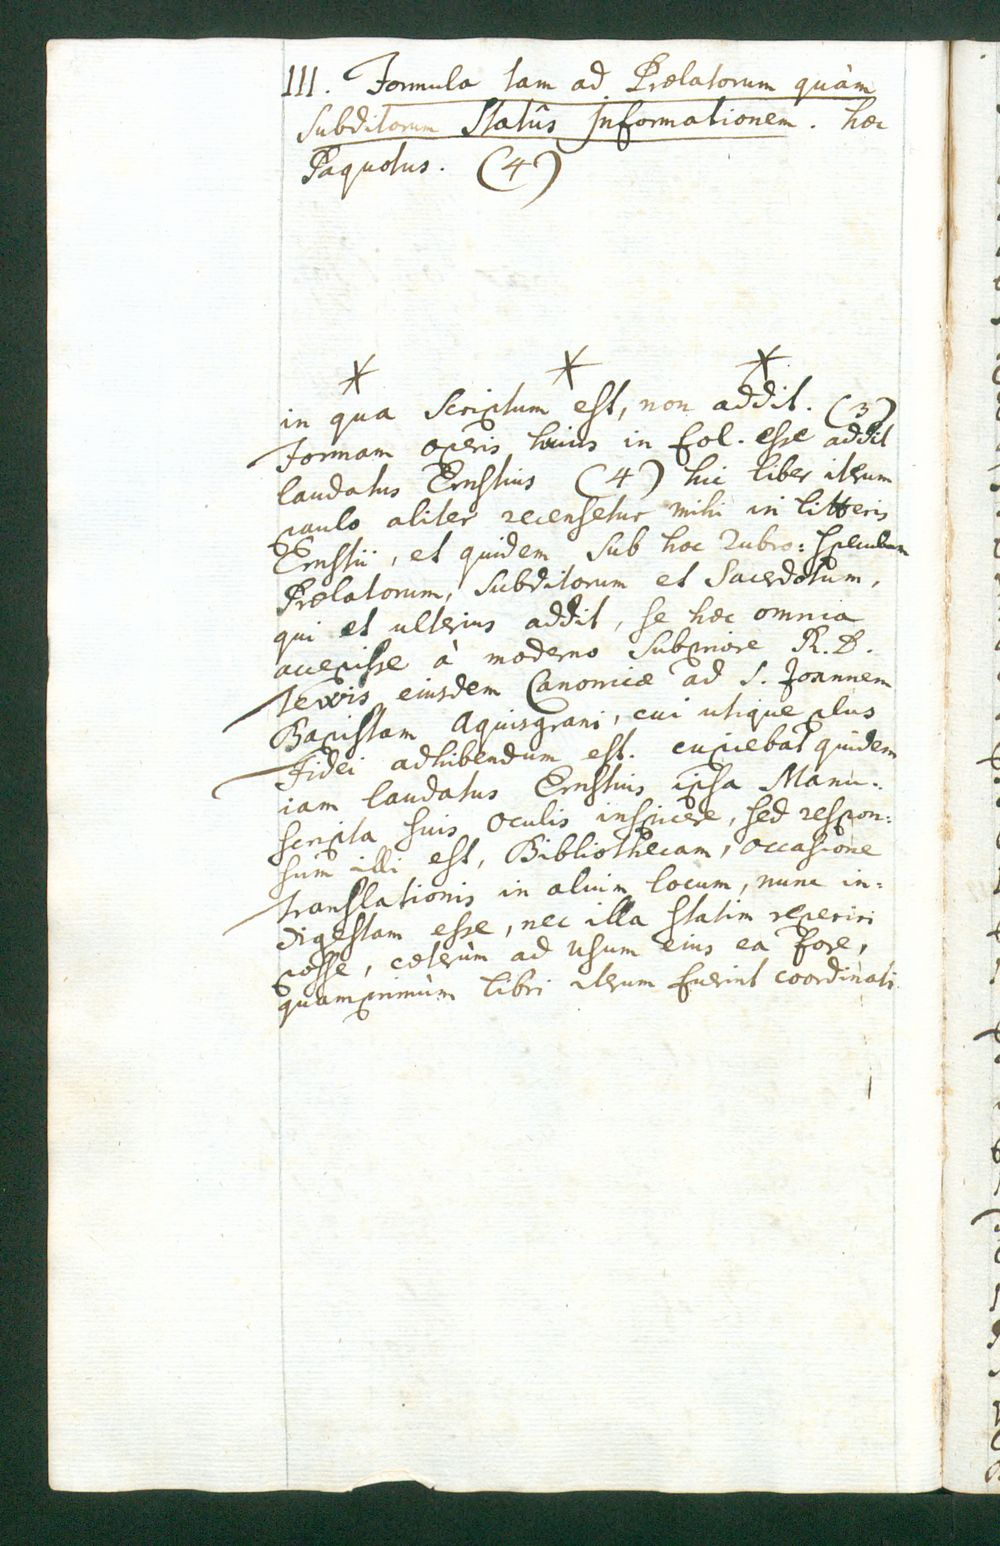 III. Formula tam ad Prælatorum quàm
Subditorum Statûs Informationem. hæc
Paquotus. (4)
* * *
in qua Scriptum est, non addit. (3)
Formam operis huius in fol. esse addit
laudatus Ernstius (4) hic liber iterum
paulo aliter recensetur mihi in litteris
Ernstii, et quidem sub hoc Rubro: speculum
Prælatorum, Subditorum et Sacerdotum,
qui et ulterius addit, se hæc omnia
accepisse à moderno Subpriore R. D.
eiusdem Canonicæ ad S. Joannem
Baptistam Aquisgrani, cui utique plus
Fidei adhibendum est. cupiebat quidem
iam laudatus Ernstius ipsa Manu-
scripta suis oculis inspicere, sed respon:
sum illi est, Bibliothecam, occasione
translationis in alium locum, nunc in=
digestam esse, nec illa statim reperiri
posse, cæterùm ad usum eius ea fore,
quamprimùm libri iterum fuerint coordinati